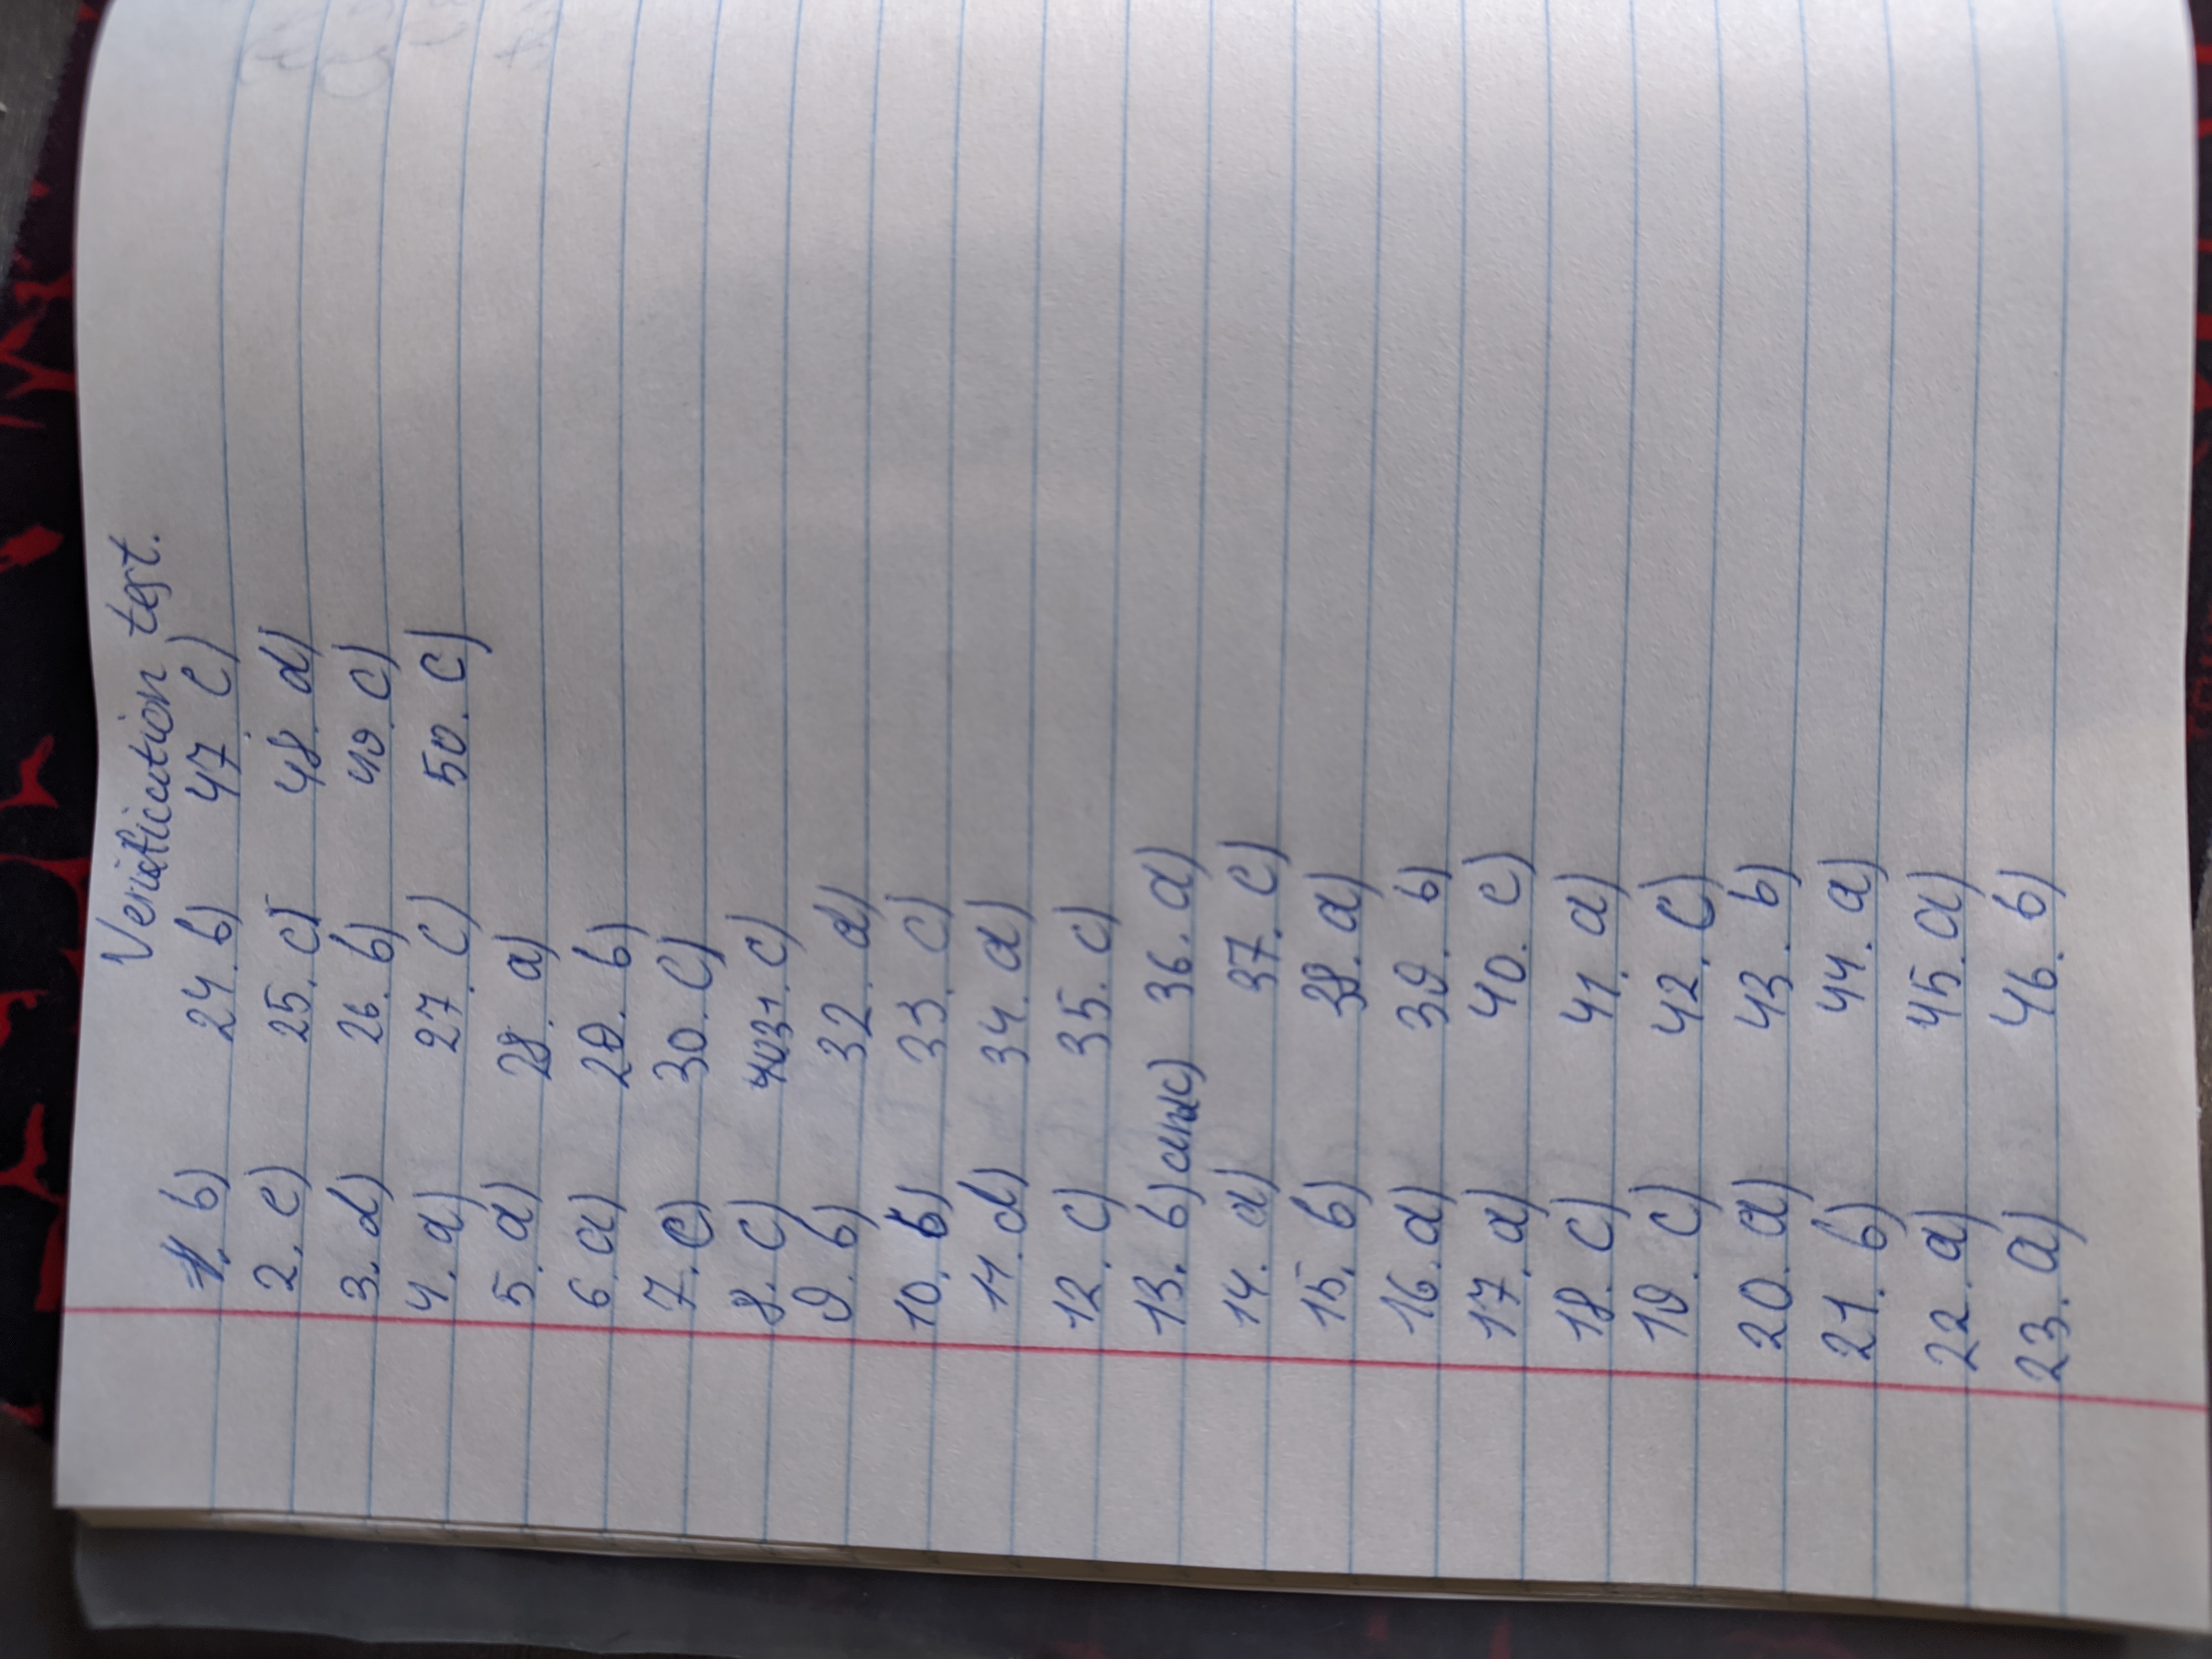 Verification test.
1. b)
2. c)
3. d)
4. a)
5. a)
6. a)
7. c)
8. c)
9. b)
10. b)
11. d)
12. c)
13. b) and c)
14. d)
15. b)
16. d)
17. a)
18. c)
19. c)
20. a)
21. b)
22. a)
23. a)
24. b)
25. c)
26. b)
27. c)
28. a)
29. b)
30. c)
31. c)
32. d)
33. c)
34. a)
35. c)
36. a)
37. c)
38. a)
39. b)
40. c)
41. a)
42. c)
43. b)
44. a)
45. a)
46. b)
47. c)
48. d)
49. c)
50. c)